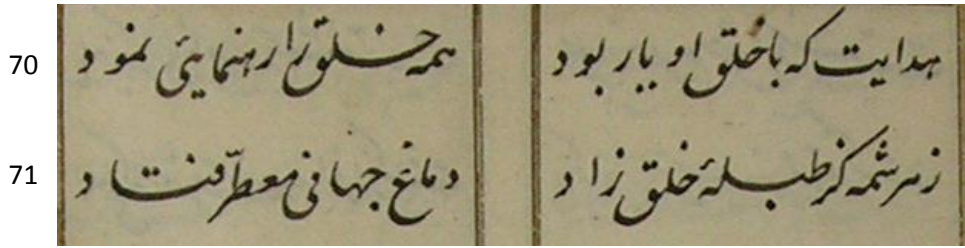 70 هدایت که با خلق او یار بود همه خلق را رهنمایئی نمود
71 زهر شمه کز طبلهٔ خلق زاد دماغ جهانی معطّر فتاد